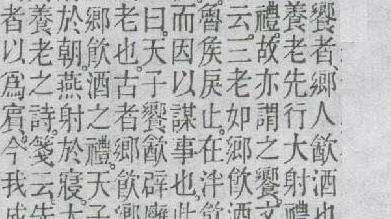 饗者鄉人飲酒也
養老先行大射禮
禮故亦謂之饗文
云三老如鄉飲酒
魯矦戾止在泮飲
而因以謀事也此
曰天子饗飲辟廱
老也古者鄉飲
鄉飲酒之禮天子
於朝燕射於寢大
養老之詩箋云先
者以爲賓今我成